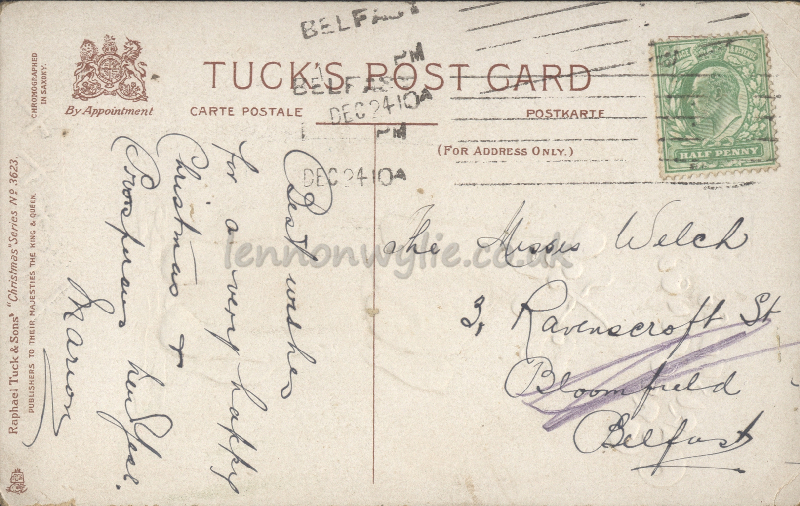 BELFAST
PM
BELFAST
DEC 24 10A
PM
DEC 24 10A
HALF PENNY
By Appointment
TUCK'S POST CARD
CARTE POSTALE
POSTKARTE
(FOR ADDRESS ONLY.)
CHROMOGRAPHED
IN SAXONY.
Raphael Tuck & Sons' "Christmas" Series No. 3623.
PUBLISHERS TO THEIR MAJESTIES THE KING & QUEEN.
Best wishes
for a very happy
Christmas &
Prosperous New Year.
Marion
The Misses Welch
3, Ravenscroft St
Bloomfield
Belfast
lennonwylie.co.uk